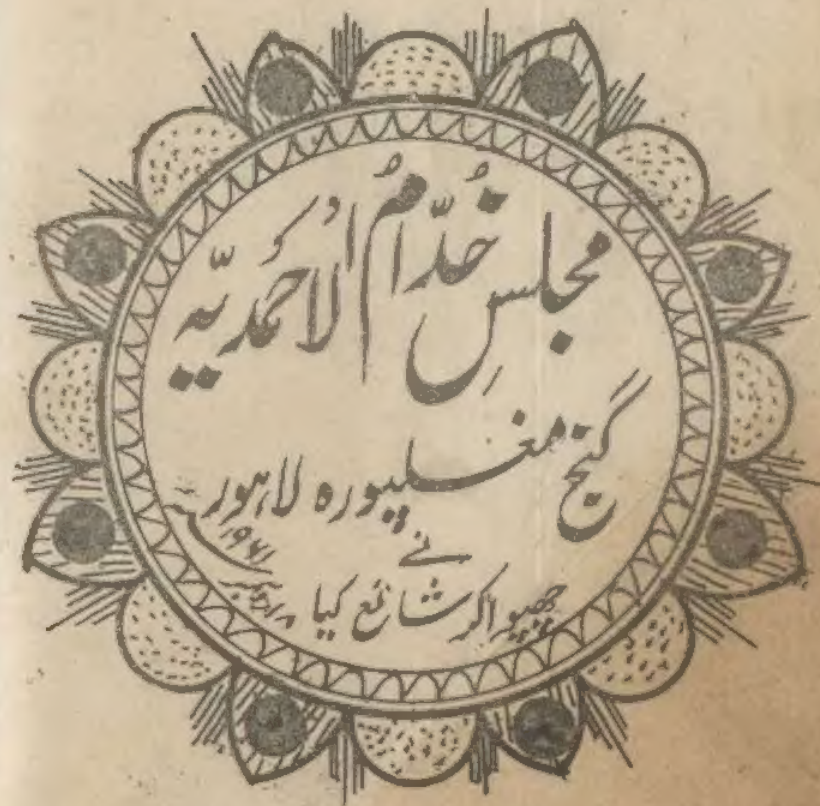 مجلسِ خُدّامُ الْاَحمدیّہ
گنج مغلپورہ لاہور
نے
چھپوا کر شائع کیا
۱۹۶۱